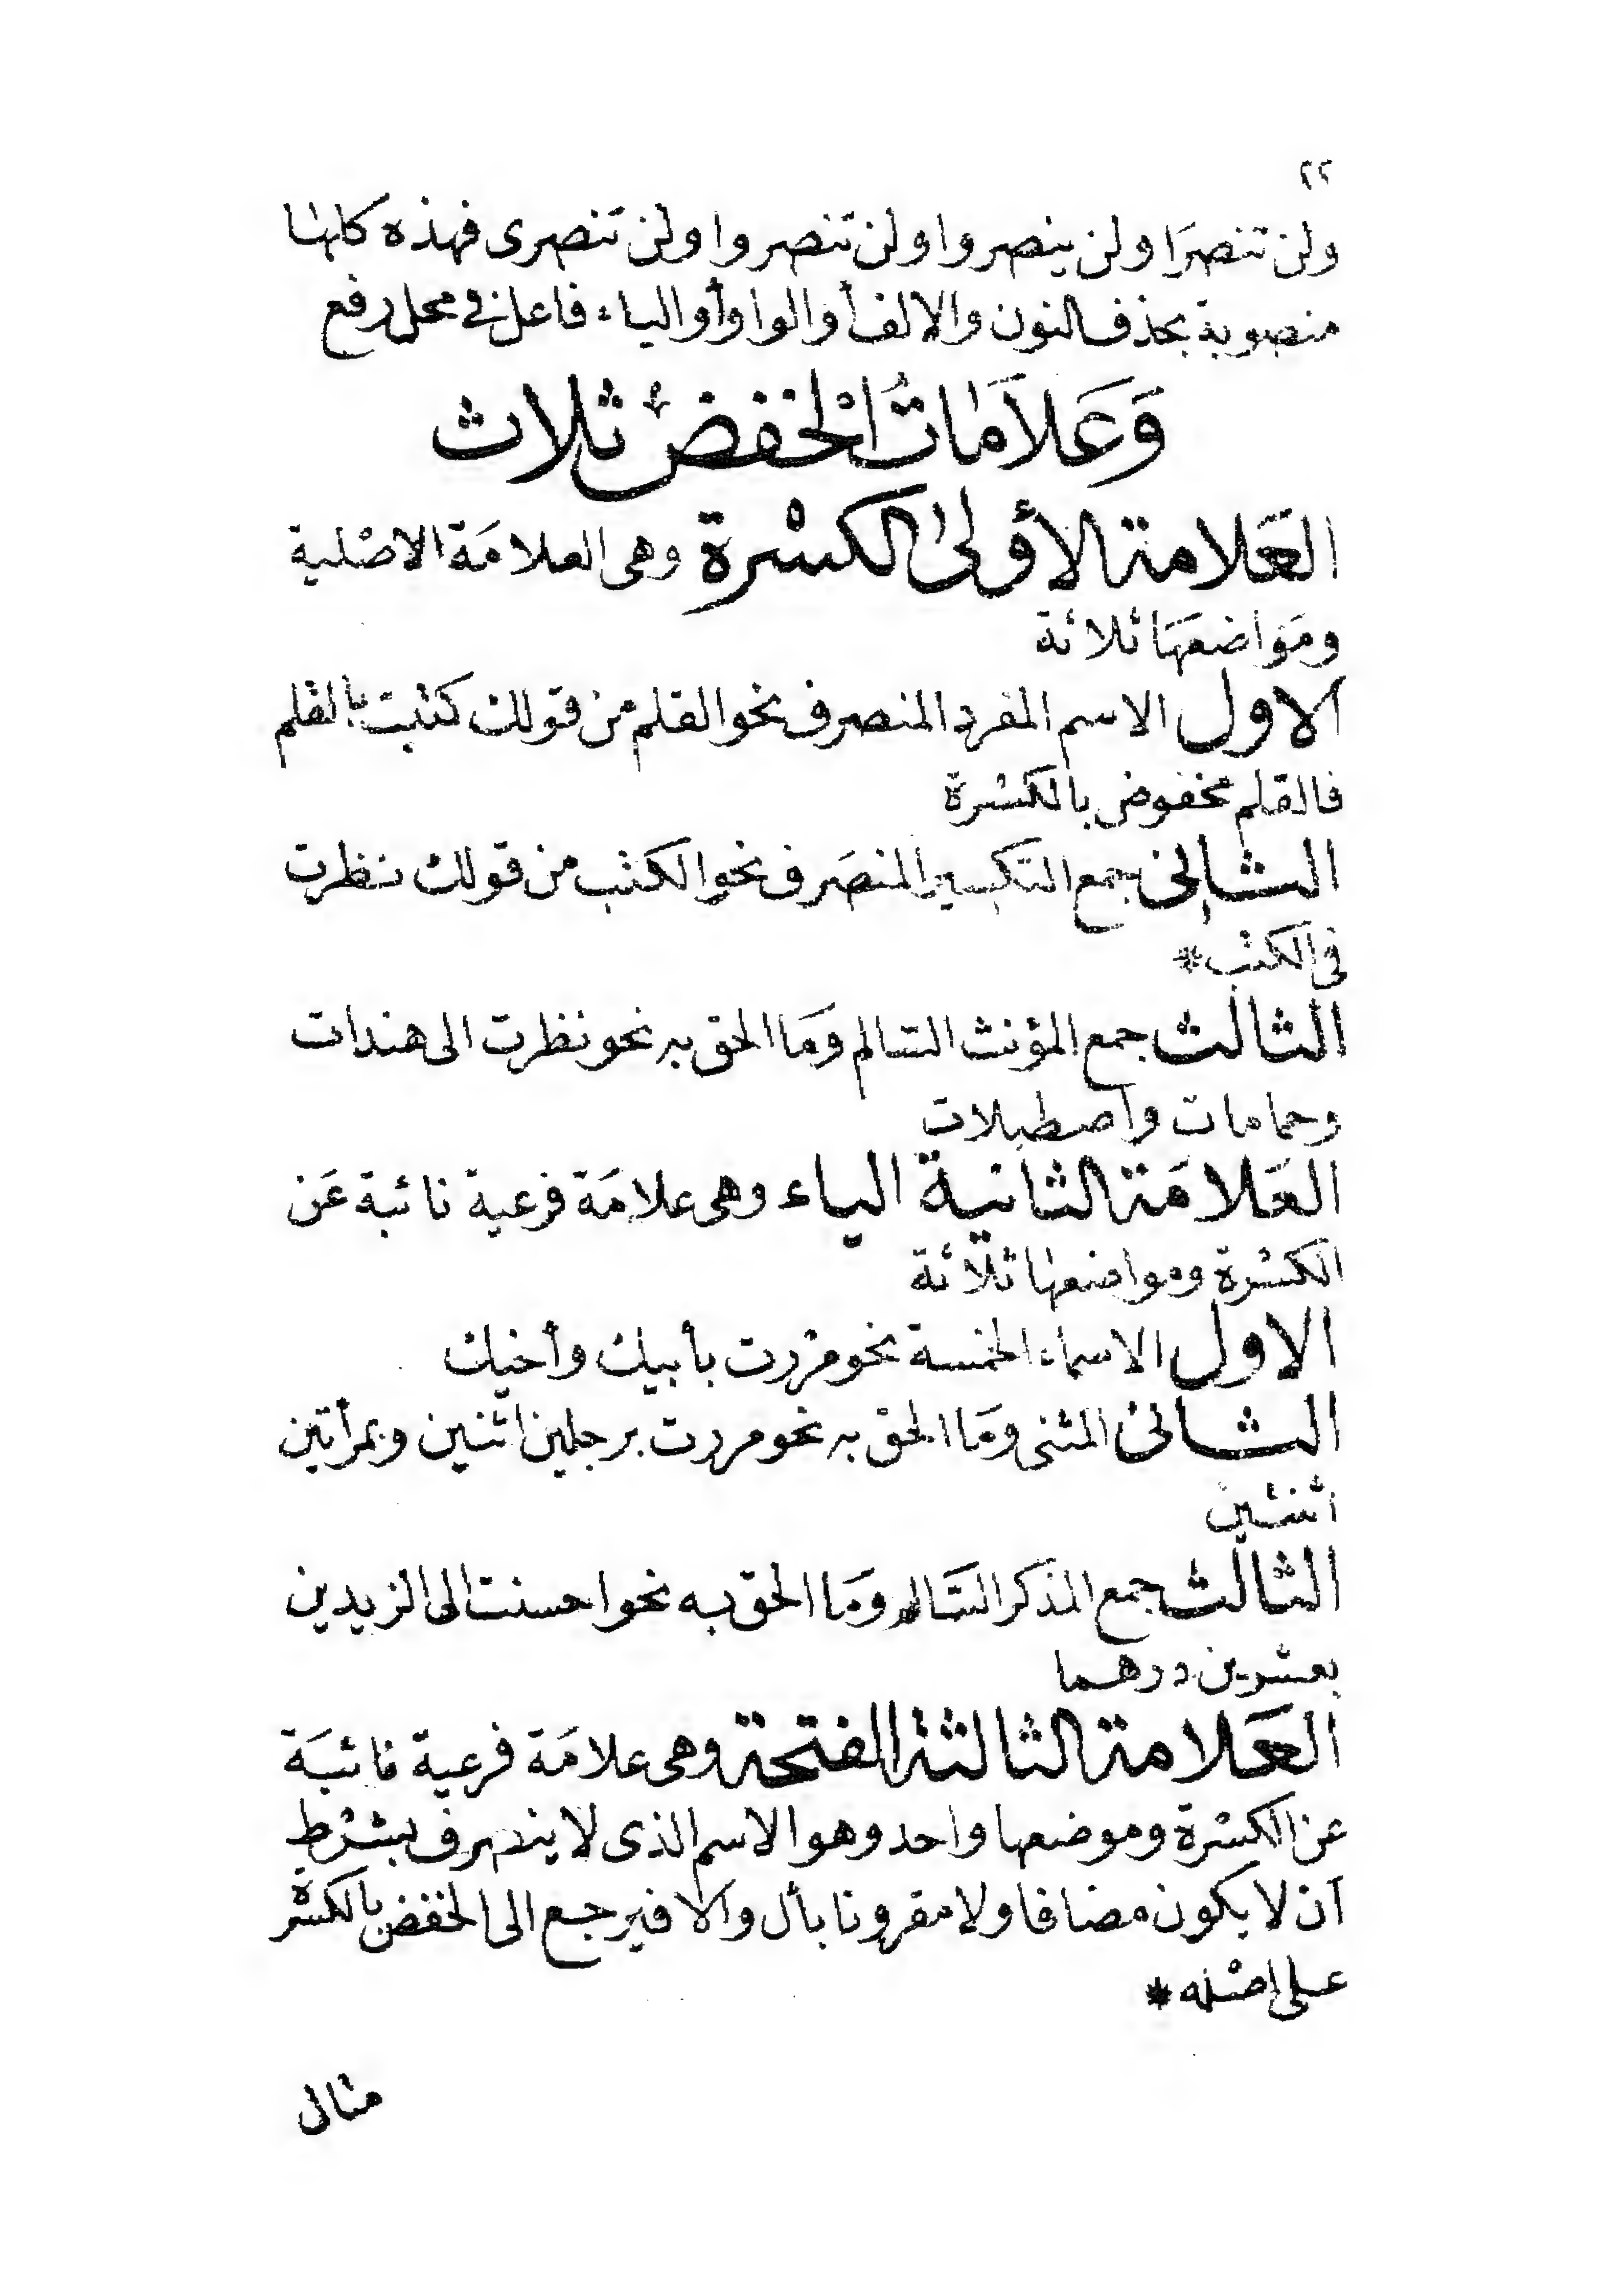 ٢٢
ولن تنصرَا ولن ينصروا ولن تنصروا ولن تنصرى فهذه كلها
منصوبة بحذف النون والالف أو الواو أو الياء فاعل فى محل رفع
وَعَلَامَاتُ الْخفض ثلاث
العَلامة الأولى الكسْرة وهى العلامَة الاصْلية
ومَوَاضعهَا ثلاثة
الاول الاسم المفرد المنصرف نحو القلم من قولك كتبت بالقلم
فالقلم مخفوض بالكسْرة
الثانى جمع التكسير المنصَرف نحو الكتب من قولك نظرت
فى الكتب *
الثالث جمع المؤنث السالم وَمَا الحق به نحو نظرت الى هندات
وحمامات واصطبلات
العَلامَة الثانية الياء وهى علامَة فرعية نائبة عَن
الكسْرة ومواضعها ثلاثة
الاول الاسماء الخمسة نحو مررت بأبيك وأخيك
الثانى المثنى وَمَا الحق به نحو مررت برجلين اثنين وبمرأتين
اثنتين
الثالث جمع المذكر السَّالم وَمَا الحق به نحو احسنت الى الزيدين
بعشرين درهما
العَلامة الثالثة الفتحة وهى علامَة فرعية نائبَة
عن الكسْرة وموضعها واحد وهو الاسم الذى لا ينصرف بشرْط
أن لا يكون مضافا ولا مقرونا بأل والا فيرجع الى الخفض بالكسْرة
على اصْله *
مثال